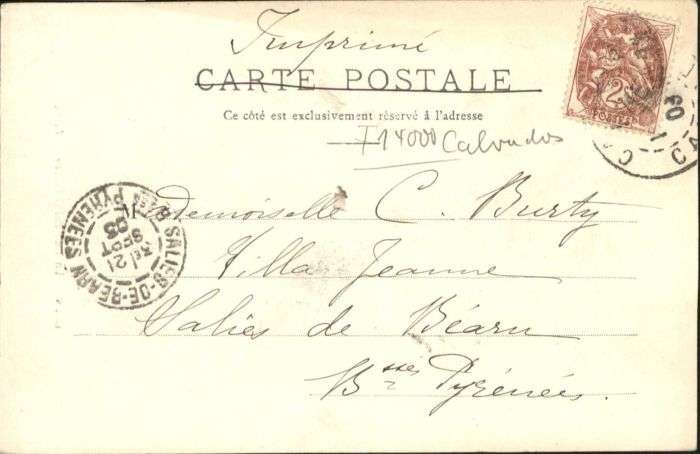 Imprimé
CARTE POSTALE
Ce côté est exclusivement réservé à l'adresse
T14000 Calvados
Mademoiselle C. Burty
Villa Jeanne
Salies de Béarn
Bsses Pyrénées
SALIES-DE-BEARN
BSES PYRENEES
3E 21
SEPT
03
2c
POSTES